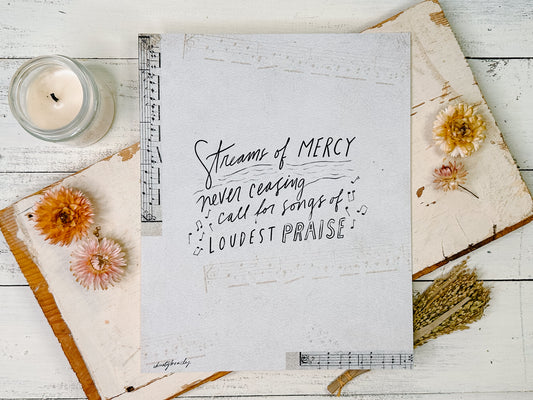 Streams of MERCY
never ceasing
call for songs of
LOUDEST PRAISE